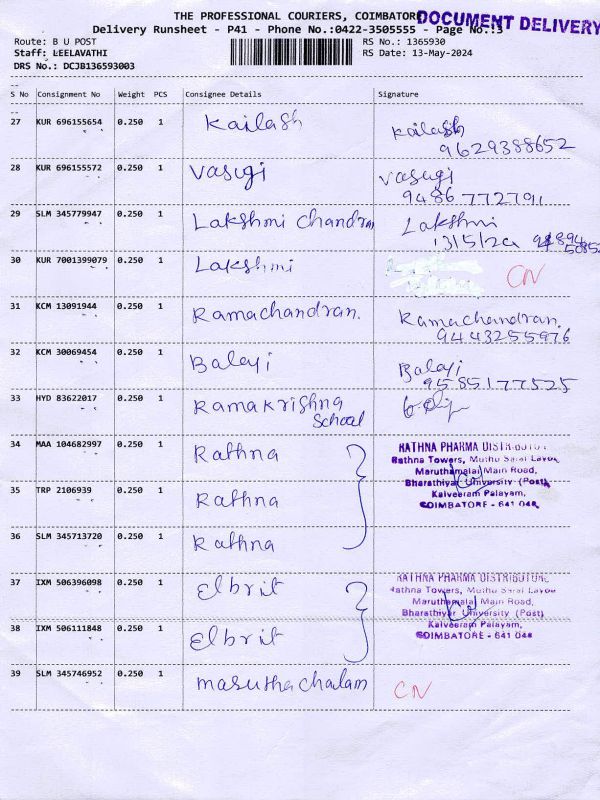 THE PROFESSIONAL COURIERS, COIMBATORE
DOCUMENT DELIVERY
Delivery Runsheet - P41 - Phone No.:0422-3505555 - Page No.:3
Route: B U POST
RS No.: 1365930
Staff: LEELAVATHI
RS Date: 13-May-2024
DRS No.: DCJB136593003
S No Consignment No Weight PCS Consignee Details Signature
27 KUR 696155654 0.250 1 Kailash Kailash
9629388652
28 KUR 696155572 0.250 1 Vasugi Vasugi
9486772791
29 SLM 345779947 0.250 1 Lakshmi Chandran Lakshmi
13/5/24
30 KUR 7001399079 0.250 1 Lakshmi CN
31 KCM 13091944 0.250 1 Ramachandran. Ramachandran.
9443255976
32 KCM 30069454 0.250 1 Balaji Balaji
9585177525
33 HYD 83622017 0.250 1 Ramakrishna
School
34 MAA 104682997 0.250 1 Rathna
RATHNA PHARMA DISTRIBUTORS
Rathna Towers, Muthu Sarai Layout
Maruthamalai Main Road,
Bharathiyar University (Post)
Kalveeram Palayam,
COIMBATORE - 641 046
35 TRP 2106939 0.250 1 Rathna
36 SLM 345713720 0.250 1 Rathna
37 IXM 506396098 0.250 1 Elbrit
RATHNA PHARMA DISTRIBUTORS
Rathna Towers, Muthu Sarai Layout
Maruthamalai Main Road,
Bharathiyar University (Post)
Kalveeram Palayam,
COIMBATORE - 641 046
38 IXM 506111848 0.250 1 Elbrit
39 SLM 345746952 0.250 1 Masuthachalam CN